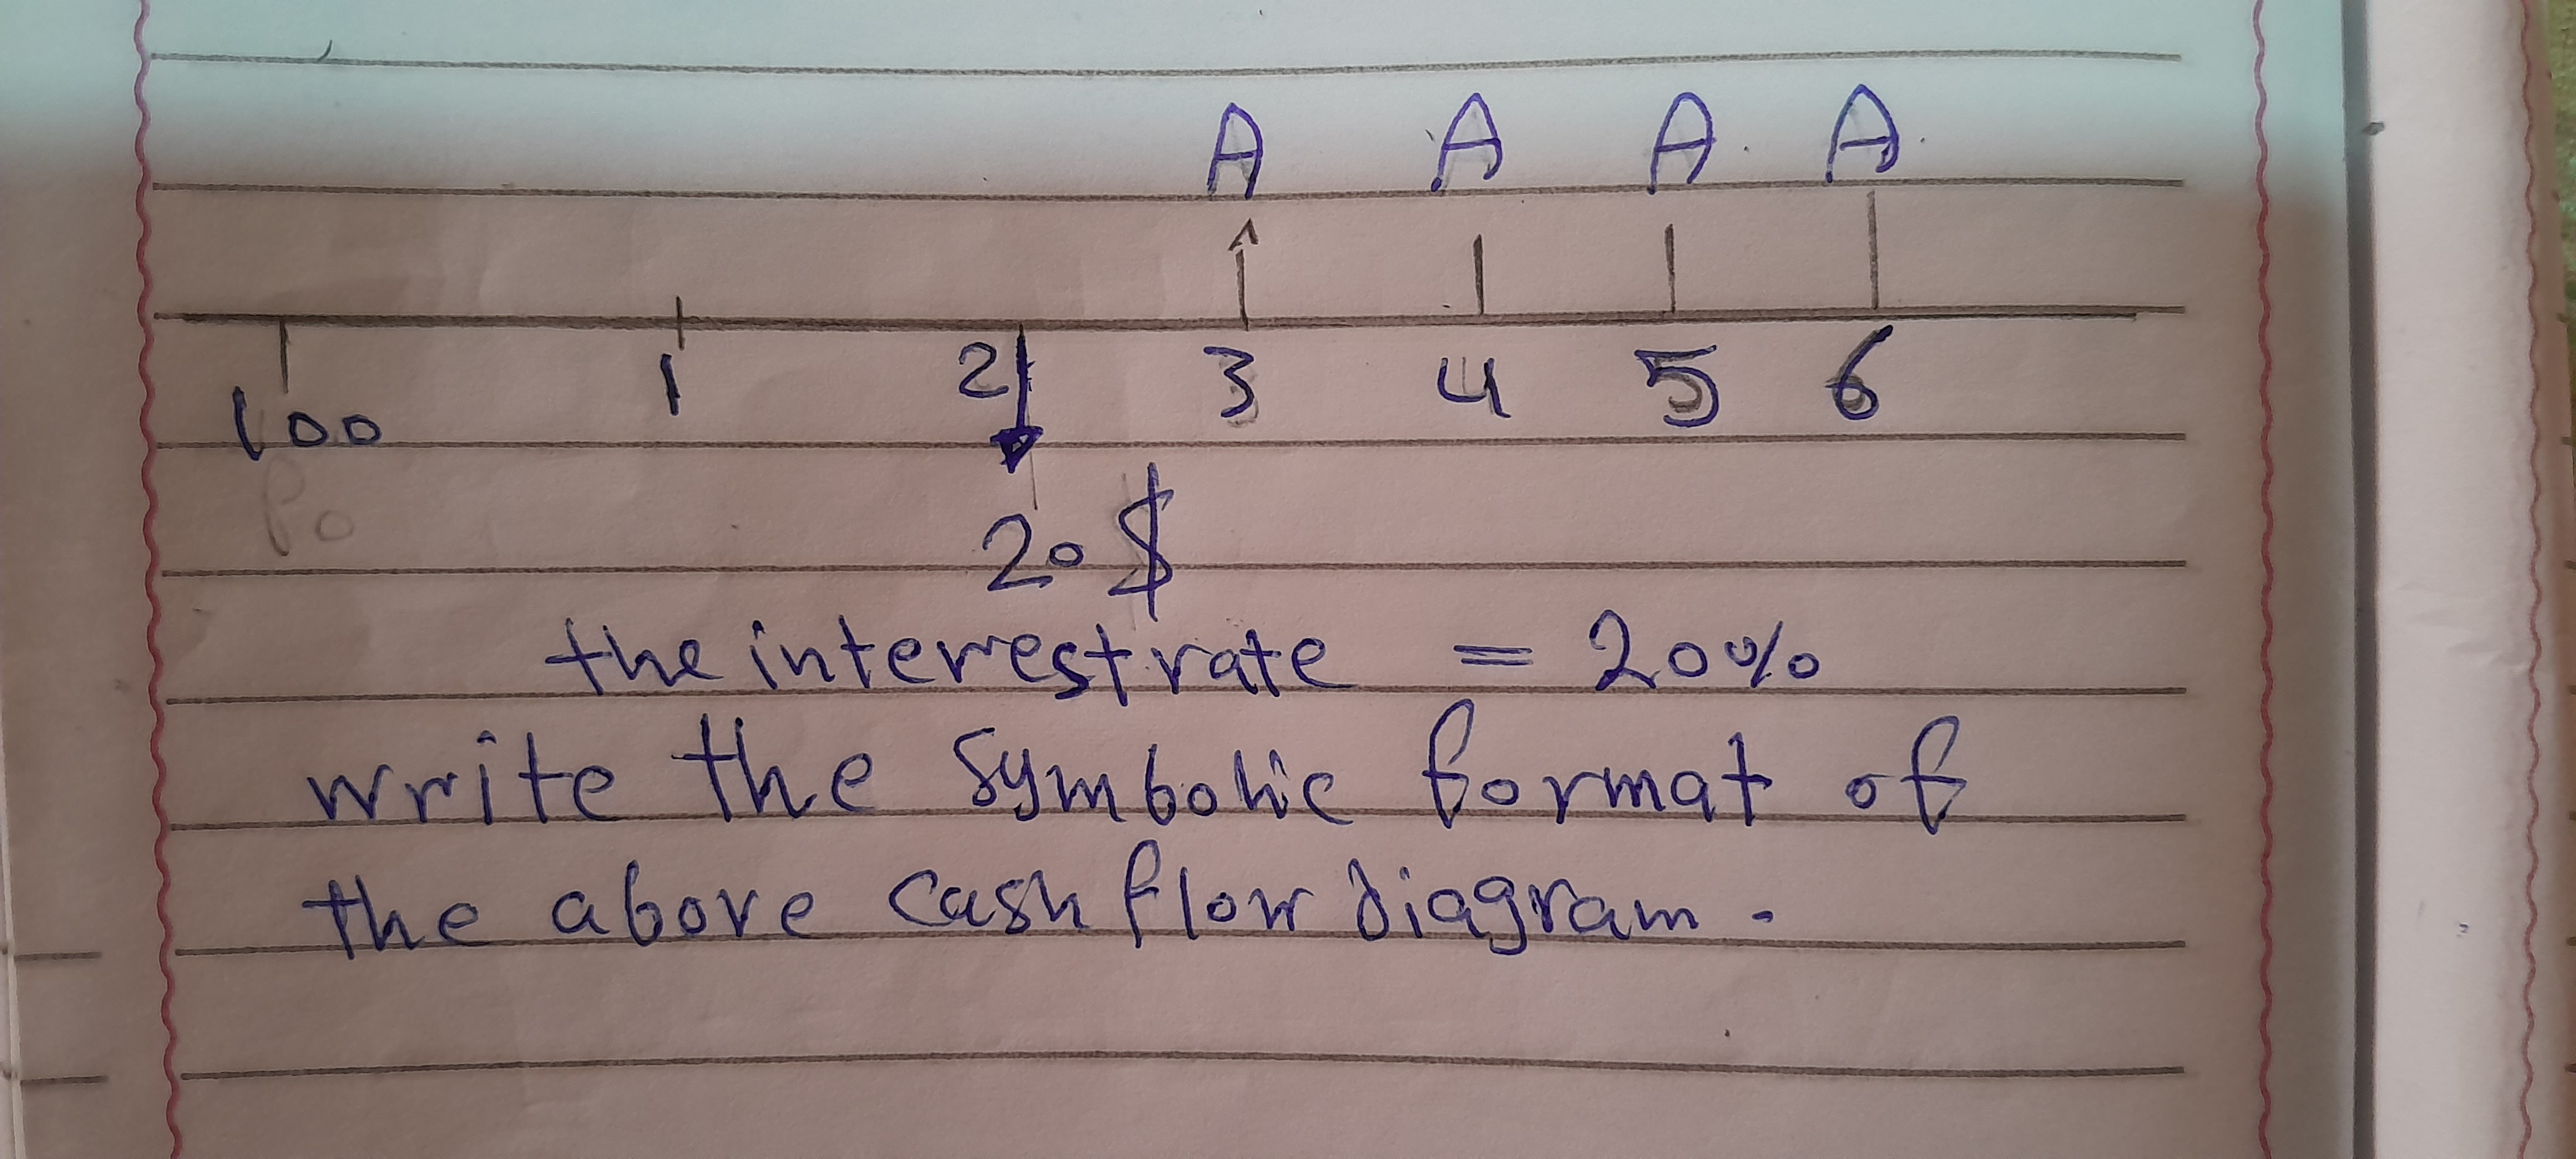 A A A A
1 2 3 4 5 6
100
20 $
the interest rate = 20%
write the symbolic format of
the above cash flow diagram.